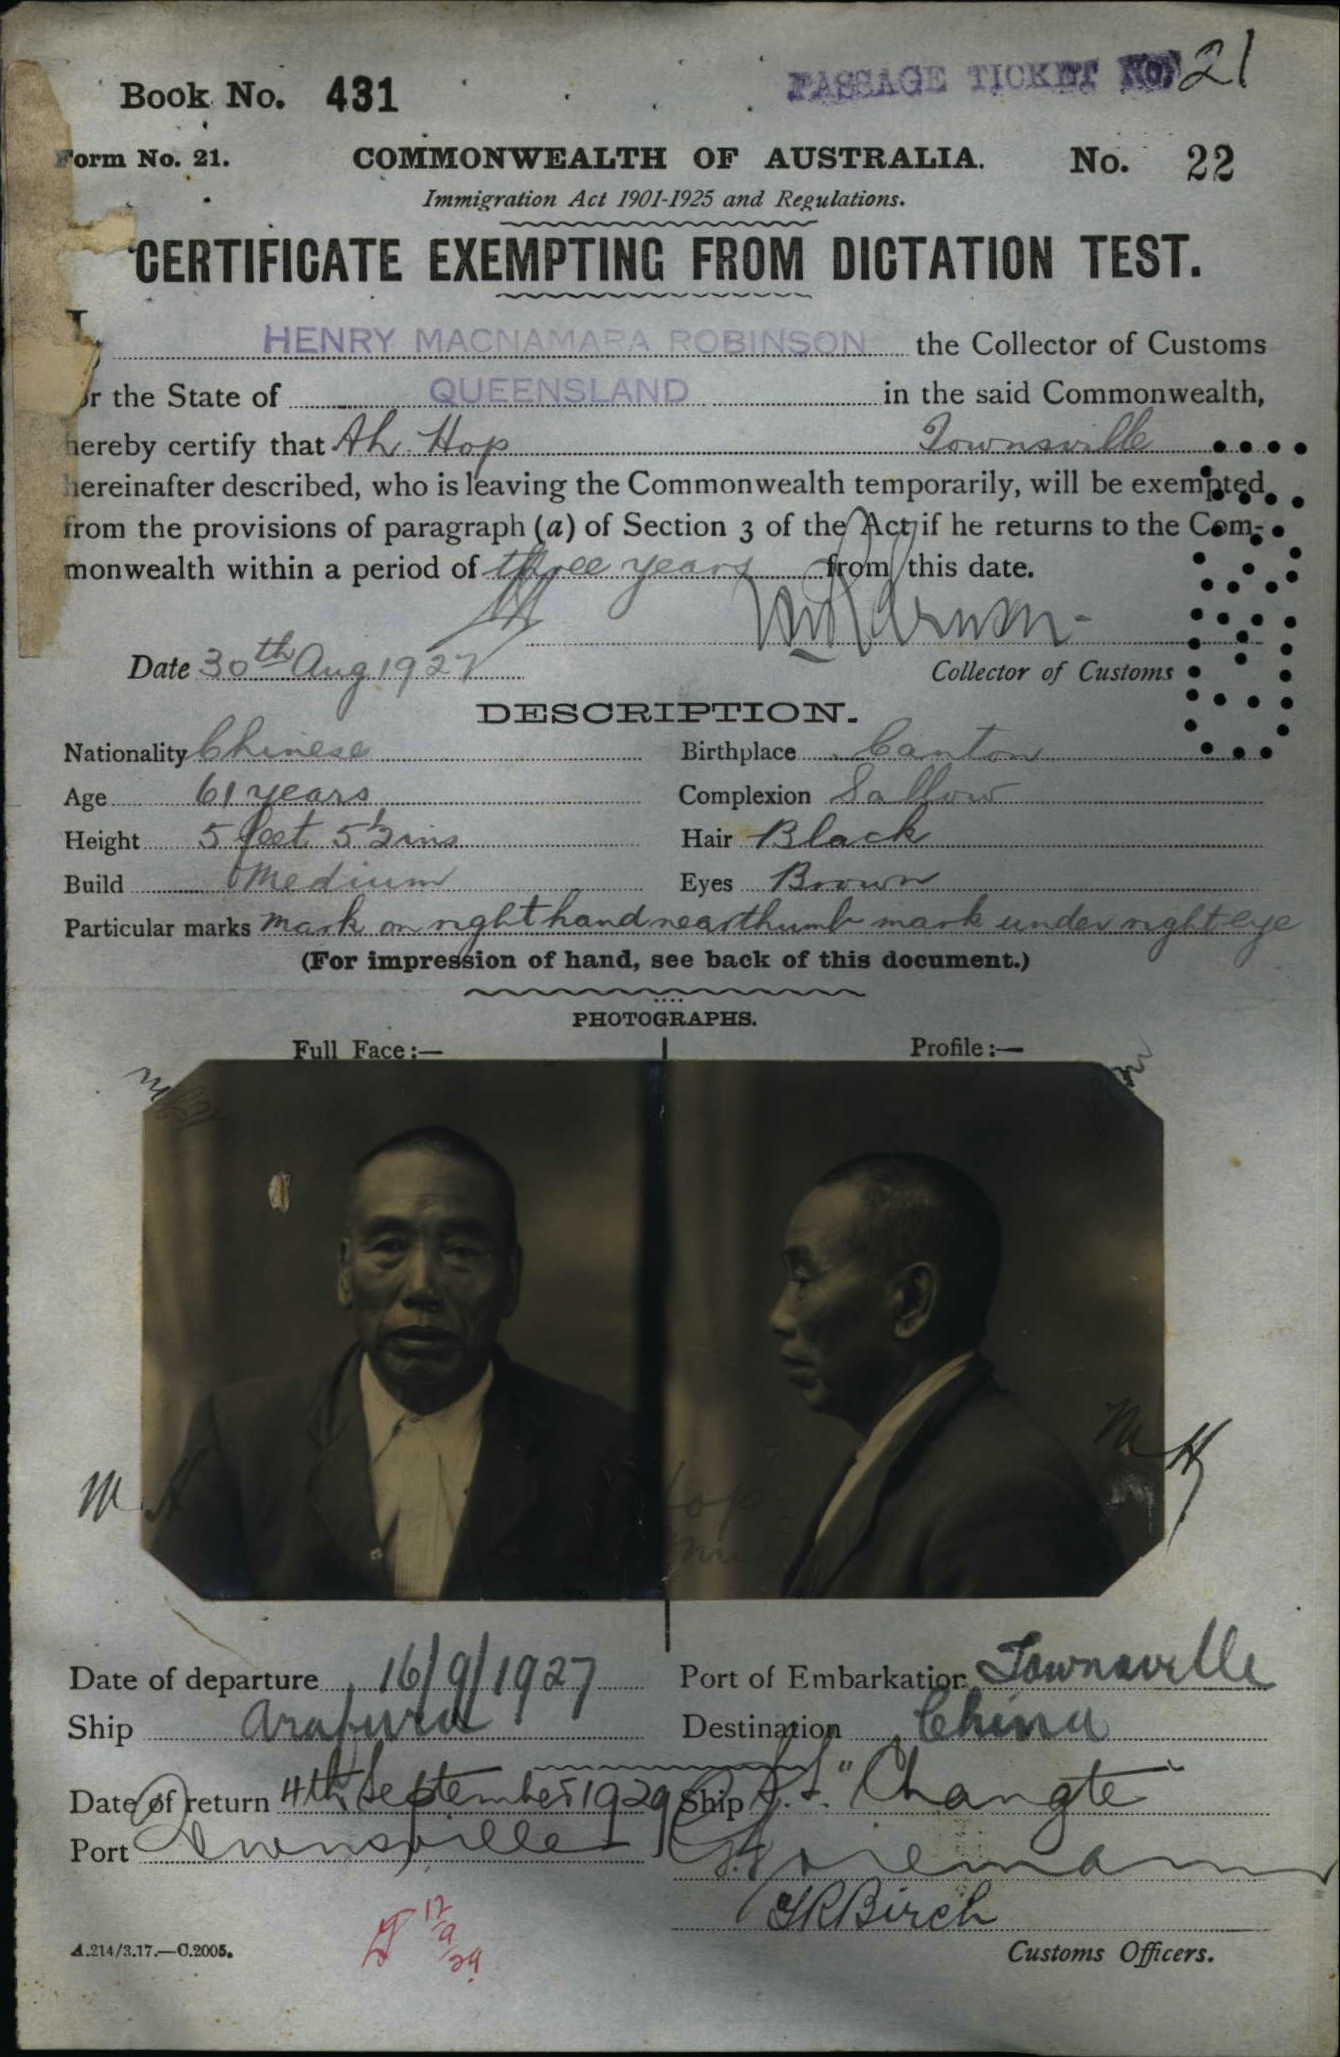 Book No. 431
PASSAGE TICKET No. 21
Form No. 21.
COMMONWEALTH OF AUSTRALIA.
No. 22
Immigration Act 1901-1925 and Regulations.
CERTIFICATE EXEMPTING FROM DICTATION TEST.
I, HENRY MACNAMARA ROBINSON the Collector of Customs
or the State of QUEENSLAND in the said Commonwealth,
hereby certify that Ah Hop Townsville
hereinafter described, who is leaving the Commonwealth temporarily, will be exempted
from the provisions of paragraph (a) of Section 3 of the Act if he returns to the Com-
monwealth within a period of three years from this date.
Date 30th Aug 1927
Collector of Customs
DESCRIPTION.
Nationality Chinese Birthplace Canton
Age 61 years Complexion Sallow
Height 5 feet 5½ ins Hair Black
Build Medium Eyes Brown
Particular marks Mark on right hand near thumb mark under right eye
(For impression of hand, see back of this document.)
PHOTOGRAPHS.
Full Face:— Profile:—
M H M H
Date of departure 16/9/1927 Port of Embarkation Townsville
Ship Arafura Destination China
Date of return 4th September 1929 Ship S.S. "Changte"
Port Townsville
GRBirch
12/9/29
A.214/3.17.—C.2005.
Customs Officers.